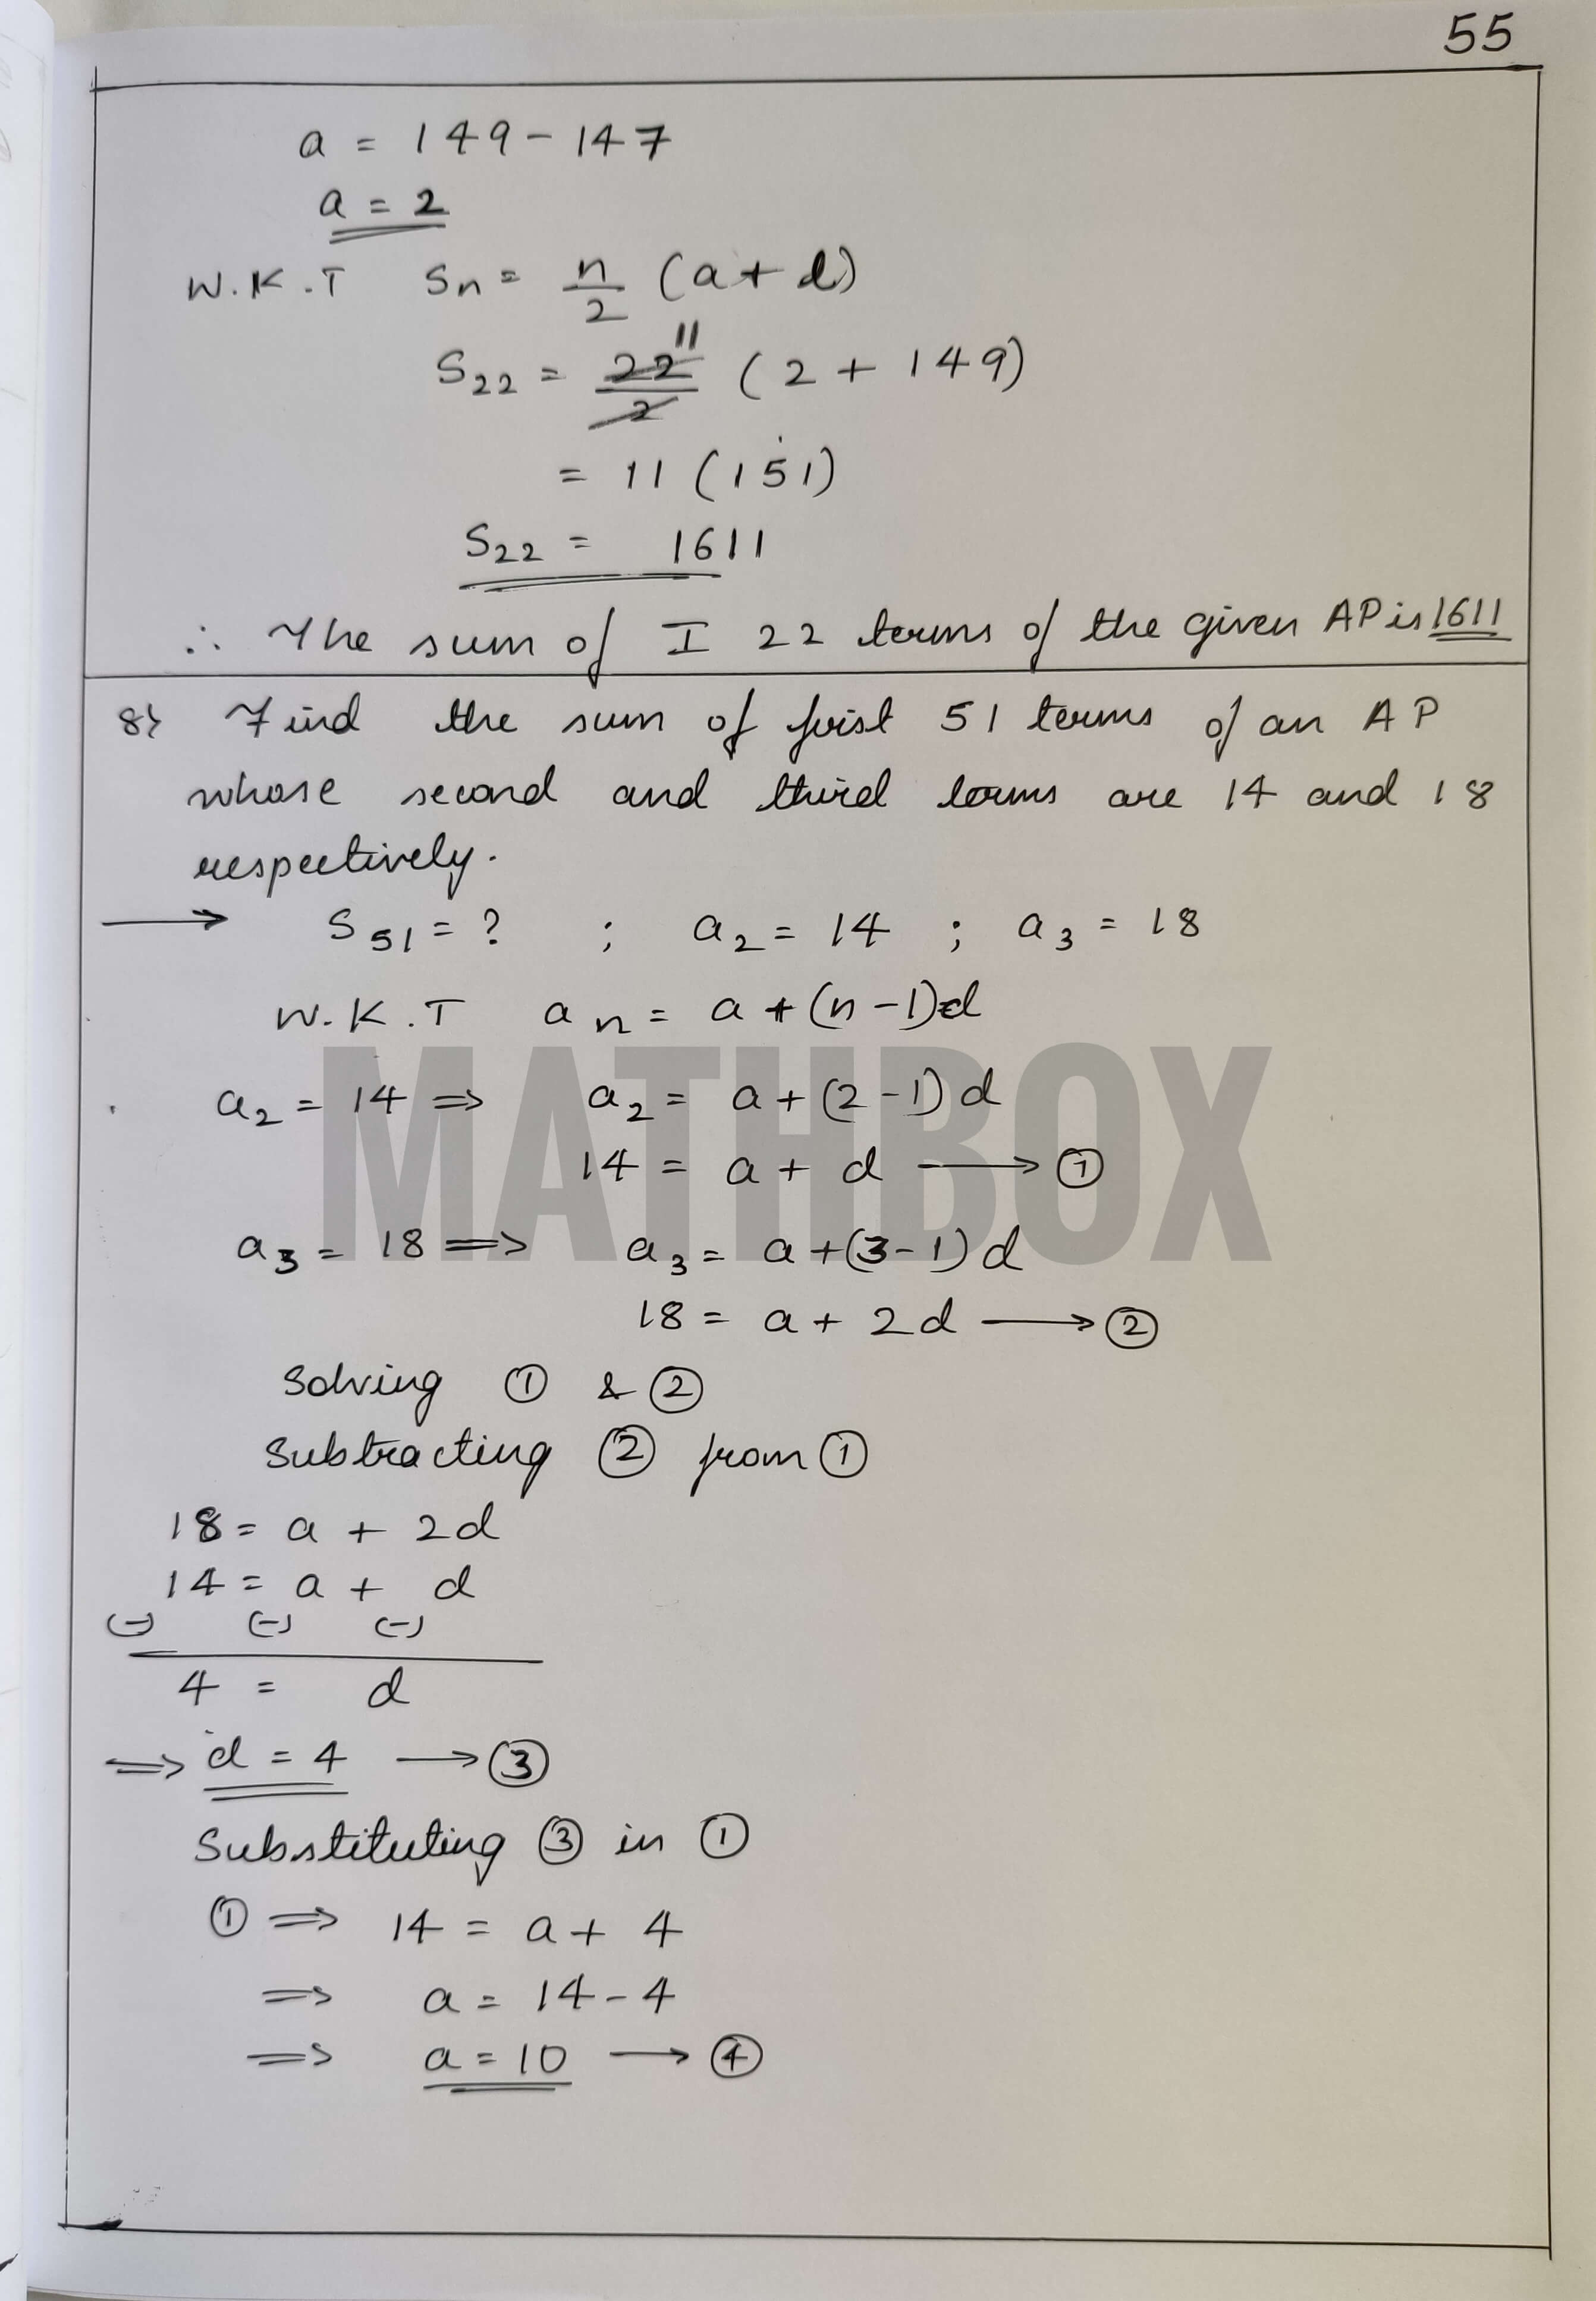 55
a = 149 - 147
a = 2
W.K.T Sn = n/2 (a + l)
S22 = 22/2 11 (2 + 149)
= 11 (151)
S22 = 1611
∴ The sum of I 22 terms of the given AP is 1611
8) Find the sum of first 51 terms of an AP
whose second and third terms are 14 and 18
respectively.
→ S51 = ? ; a2 = 14 ; a3 = 18
W.K.T an = a + (n - 1)d
MATHBOX
a2 = 14 ⇒ a2 = a + (2 - 1) d
14 = a + d → ①
a3 = 18 ⇒ a3 = a + (3 - 1) d
18 = a + 2d → ②
Solving ① & ②
Subtracting ② from ①
18 = a + 2d
14 = a + d
(-) (-) (-)
4 = d
⇒ d = 4 → ③
Substituting ③ in ①
① ⇒ 14 = a + 4
⇒ a = 14 - 4
⇒ a = 10 → ④